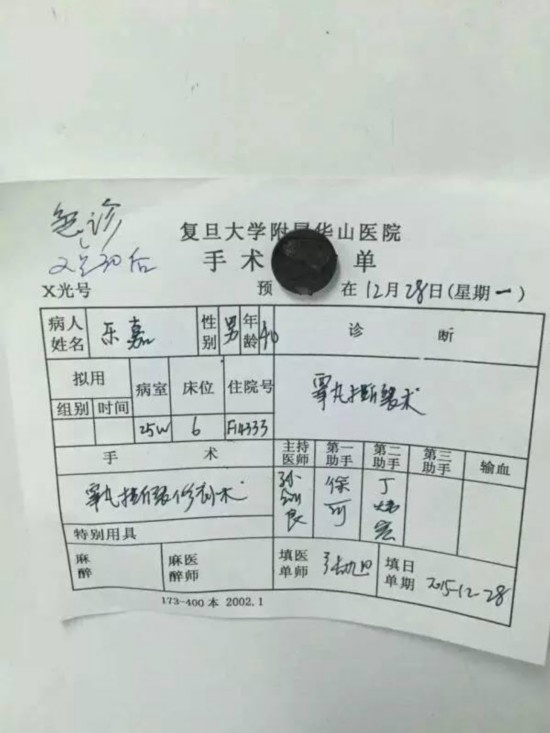 急诊
22:30后
复旦大学附属华山医院
手术 单
X光号 预 在12月28日(星期一)
病人姓名 乐嘉 性别 男 年龄 40 诊断
拟用 病室 床位 住院号
组别 时间 25W 6
睾丸
手术 主持医师 第一助手 第二助手 第三助手 输血
睾丸 修补术
徐可
特别用具
麻醉 麻醉医师 填单医师 张旭 填单日期 2015-12-28
173-400本 2002.1